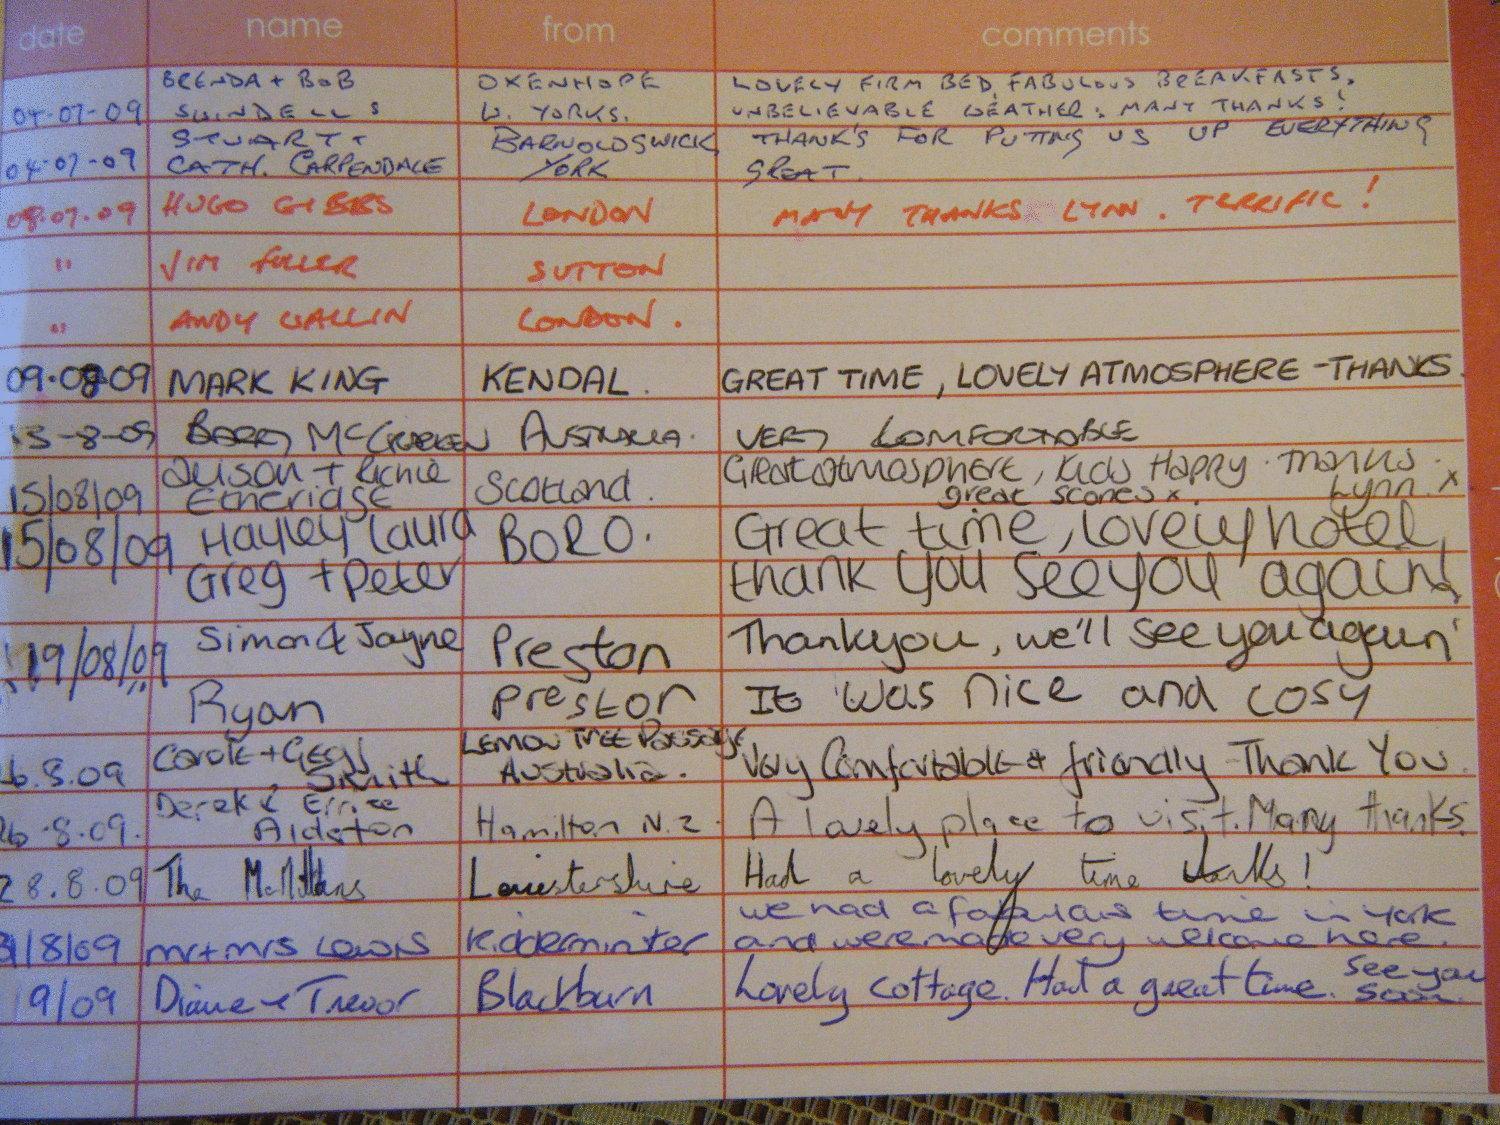 date name from comments
BRENDA + BOB OXENHOPE LOVELY FIRM BED, FABULOUS BREAKFASTS,
04-07-09 SWINDELLS W. YORKS. UNBELIEVABLE WEATHER. MANY THANKS!
STUART + BARNOLDSWICK THANK'S FOR PUTTING US UP EVERYTHING
04-07-09 CATH. CARPENDALE YORK GREAT.
08.07.09 HUGO GIBBS LONDON MANY THANKS LYNN. TERRIFIC!
" JIM FULLER SUTTON
" ANDY WALLIN LONDON.
09.08.09 MARK KING KENDAL. GREAT TIME, LOVELY ATMOSPHERE - THANKS.
13-8-09 BARRY McCRACKEN AUSTRALIA. VERY COMFORTABLE
Alison + Richie Great atmosphere, kids Happy. Thanks
15/08/09 Etheridge Scotland. great scones x. Lynn. x
15/08/09 Hayley Laura BORO. Great time, lovely hotel,
Greg + Peter thank you see you again!
19/08/09 Simon & Jayne Preston Thankyou, we'll see you again'
Ryan Preston It was nice and cosy
Carole + Geoff LEMON TREE Passage
6.8.09 Smith Australia. Very Comfortable & friendly - Thank You.
Derek &
26.8.09. Hamilton N.Z. A lovely place to visit. Many thanks.
28.8.09 The McMillans Leicestershire Had a lovely time thanks!
we had a fabulous time in York
31/8/09 mr+mrs Lewis Kidderminster and were made very welcome here.
9/09 Diane & Trevor Blackburn Lovely cottage. Had a great time. See you
soon.